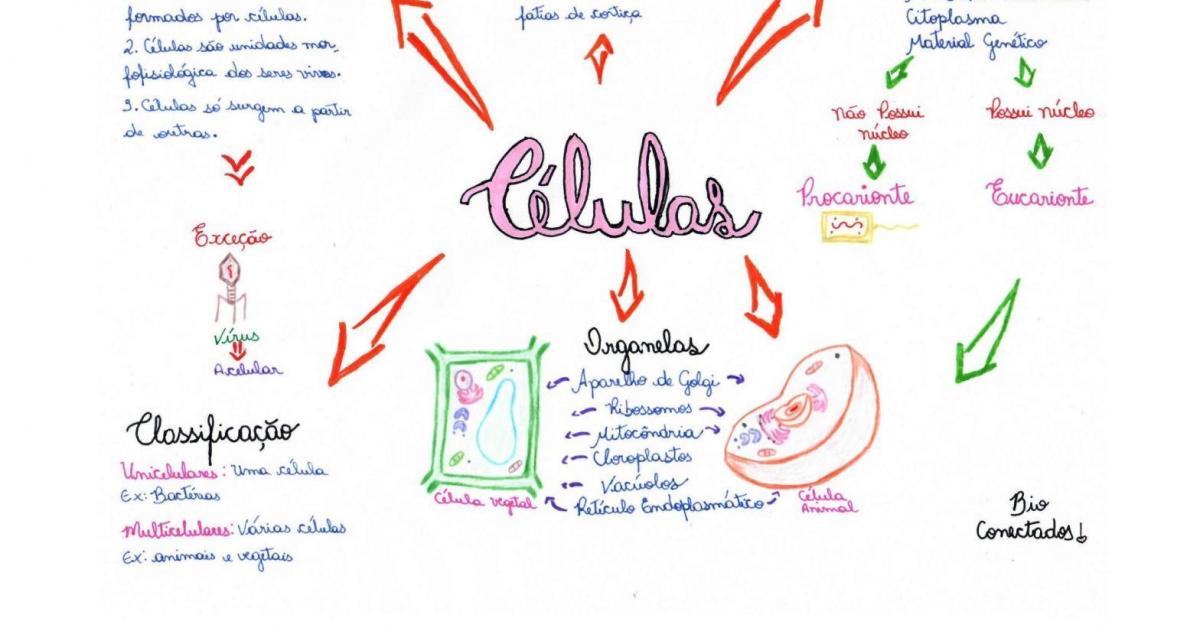 formados por células.
2. Células são unidades mor-
fofisiológica dos seres vivos.
3. Células só surgem a partir
de outras.
Exceção
Vírus
Acelular
fatias de cortiça
Citoplasma
Material Genético
Não Possui
núcleo
Possui núcleo
Procarionte
Eucarionte
Células
Organelas
Aparelho de Golgi
Ribossomos
Mitocôndria
Cloroplastos
Vacúolos
Retículo Endoplasmático
Célula vegetal
Célula
Animal
Classificação
Unicelulares: Uma célula
Ex: Bactérias
Multicelulares: Várias células
Ex: animais e vegetais
Bio
Conectados